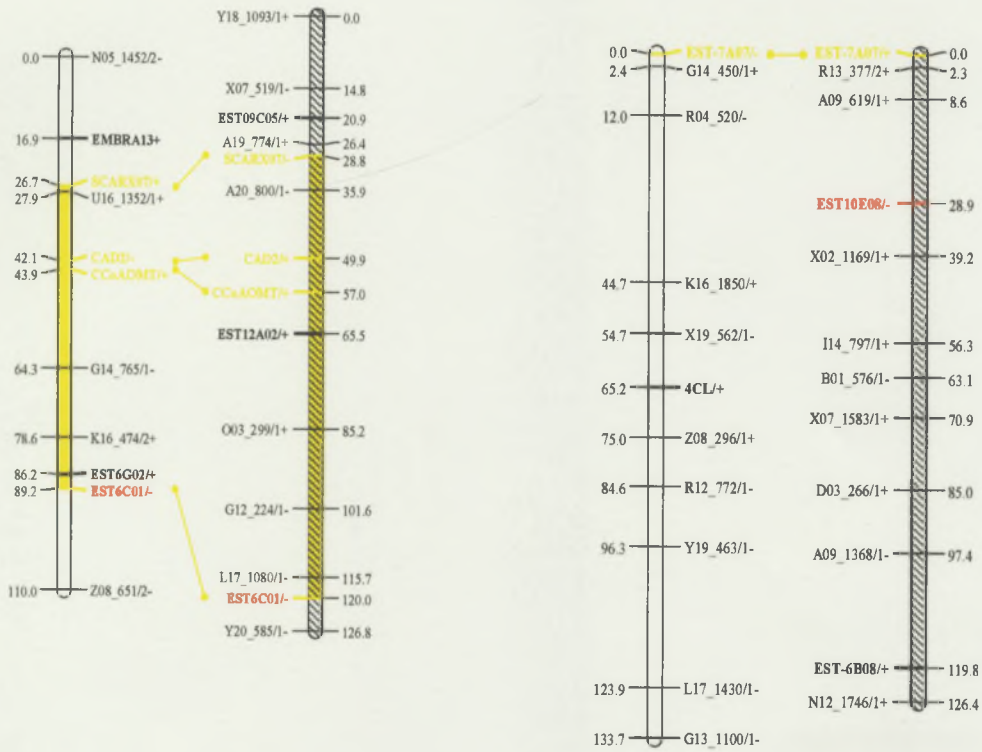 0.0 N05_1452/2-
16.9 EMBRA13+
26.7 SCARX07/+
27.9 U16_1352/1+
42.1 CAD2/-
43.9 CCoAOMT/+
64.3 G14_765/1-
78.6 K16_474/2+
86.2 EST6G02/+
89.2 EST6C01/-
110.0 Z08_651/2-
Y18_1093/1+ 0.0
X07_519/1- 14.8
EST09C05/+ 20.9
A19_774/1+ 26.4
SCARX07/- 28.8
A20_800/1- 35.9
49.9
CCoAOMT/+ 57.0
EST12A02/+ 65.5
O03_299/1+ 85.2
G12_224/1- 101.6
L17_1080/1- 115.7
EST6C01/- 120.0
Y20_585/1- 126.8
0.0 EST-7A07/-
2.4 G14_450/1+
12.0 R04_520/-
44.7 K16_1850/+
54.7 X19_562/1-
65.2 4CL/+
75.0 Z08_296/1+
84.6 R12_772/1-
96.3 Y19_463/1-
123.9 L17_1430/1-
133.7 G13_1100/1-
EST-7A07/+ 0.0
R13_377/2+ 2.3
A09_619/1+ 8.6
EST10E08/- 28.9
X02_1169/1+ 39.2
I14_797/1+ 56.3
B01_576/1- 63.1
X07_1583/1+ 70.9
D03_266/1+ 85.0
A09_1368/1- 97.4
EST-6B08/+ 119.8
N12_1746/1+ 126.4